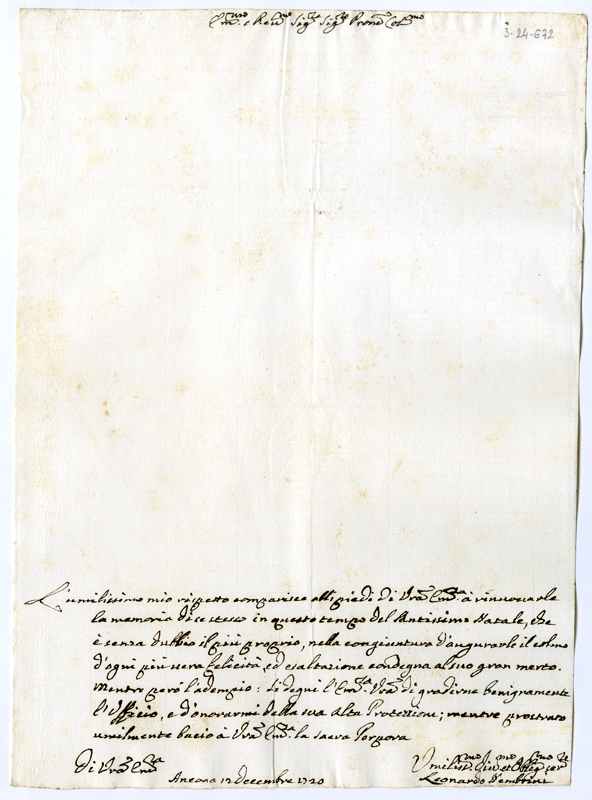 Em.mo e Reu.mo Sig.re Sig.re Prone Col.mo
3-24-672
L'umilissimo mio rispetto comparisce alli piedi di Vra Em.za à rinnouarle
la memoria di se stesso in questo tempo del Santissimo Natale, che
è senza dubbio il più proprio, nella congiuntura d'augurarle il colmo
d'ogni più uera felicità, ed esaltazione condegna al suo gran merto.
Mentre però l'adempio: si degni l'Em.za Vra di gradirne benignamente
l'Ufficio, e d'onorarmi della sua alta Protezione; mentre prostrato
umilmente bacio à Vra Em.za la sacra Porpora
Di Vra Em.za
Ancona 12 decembre 1720
Leonardo